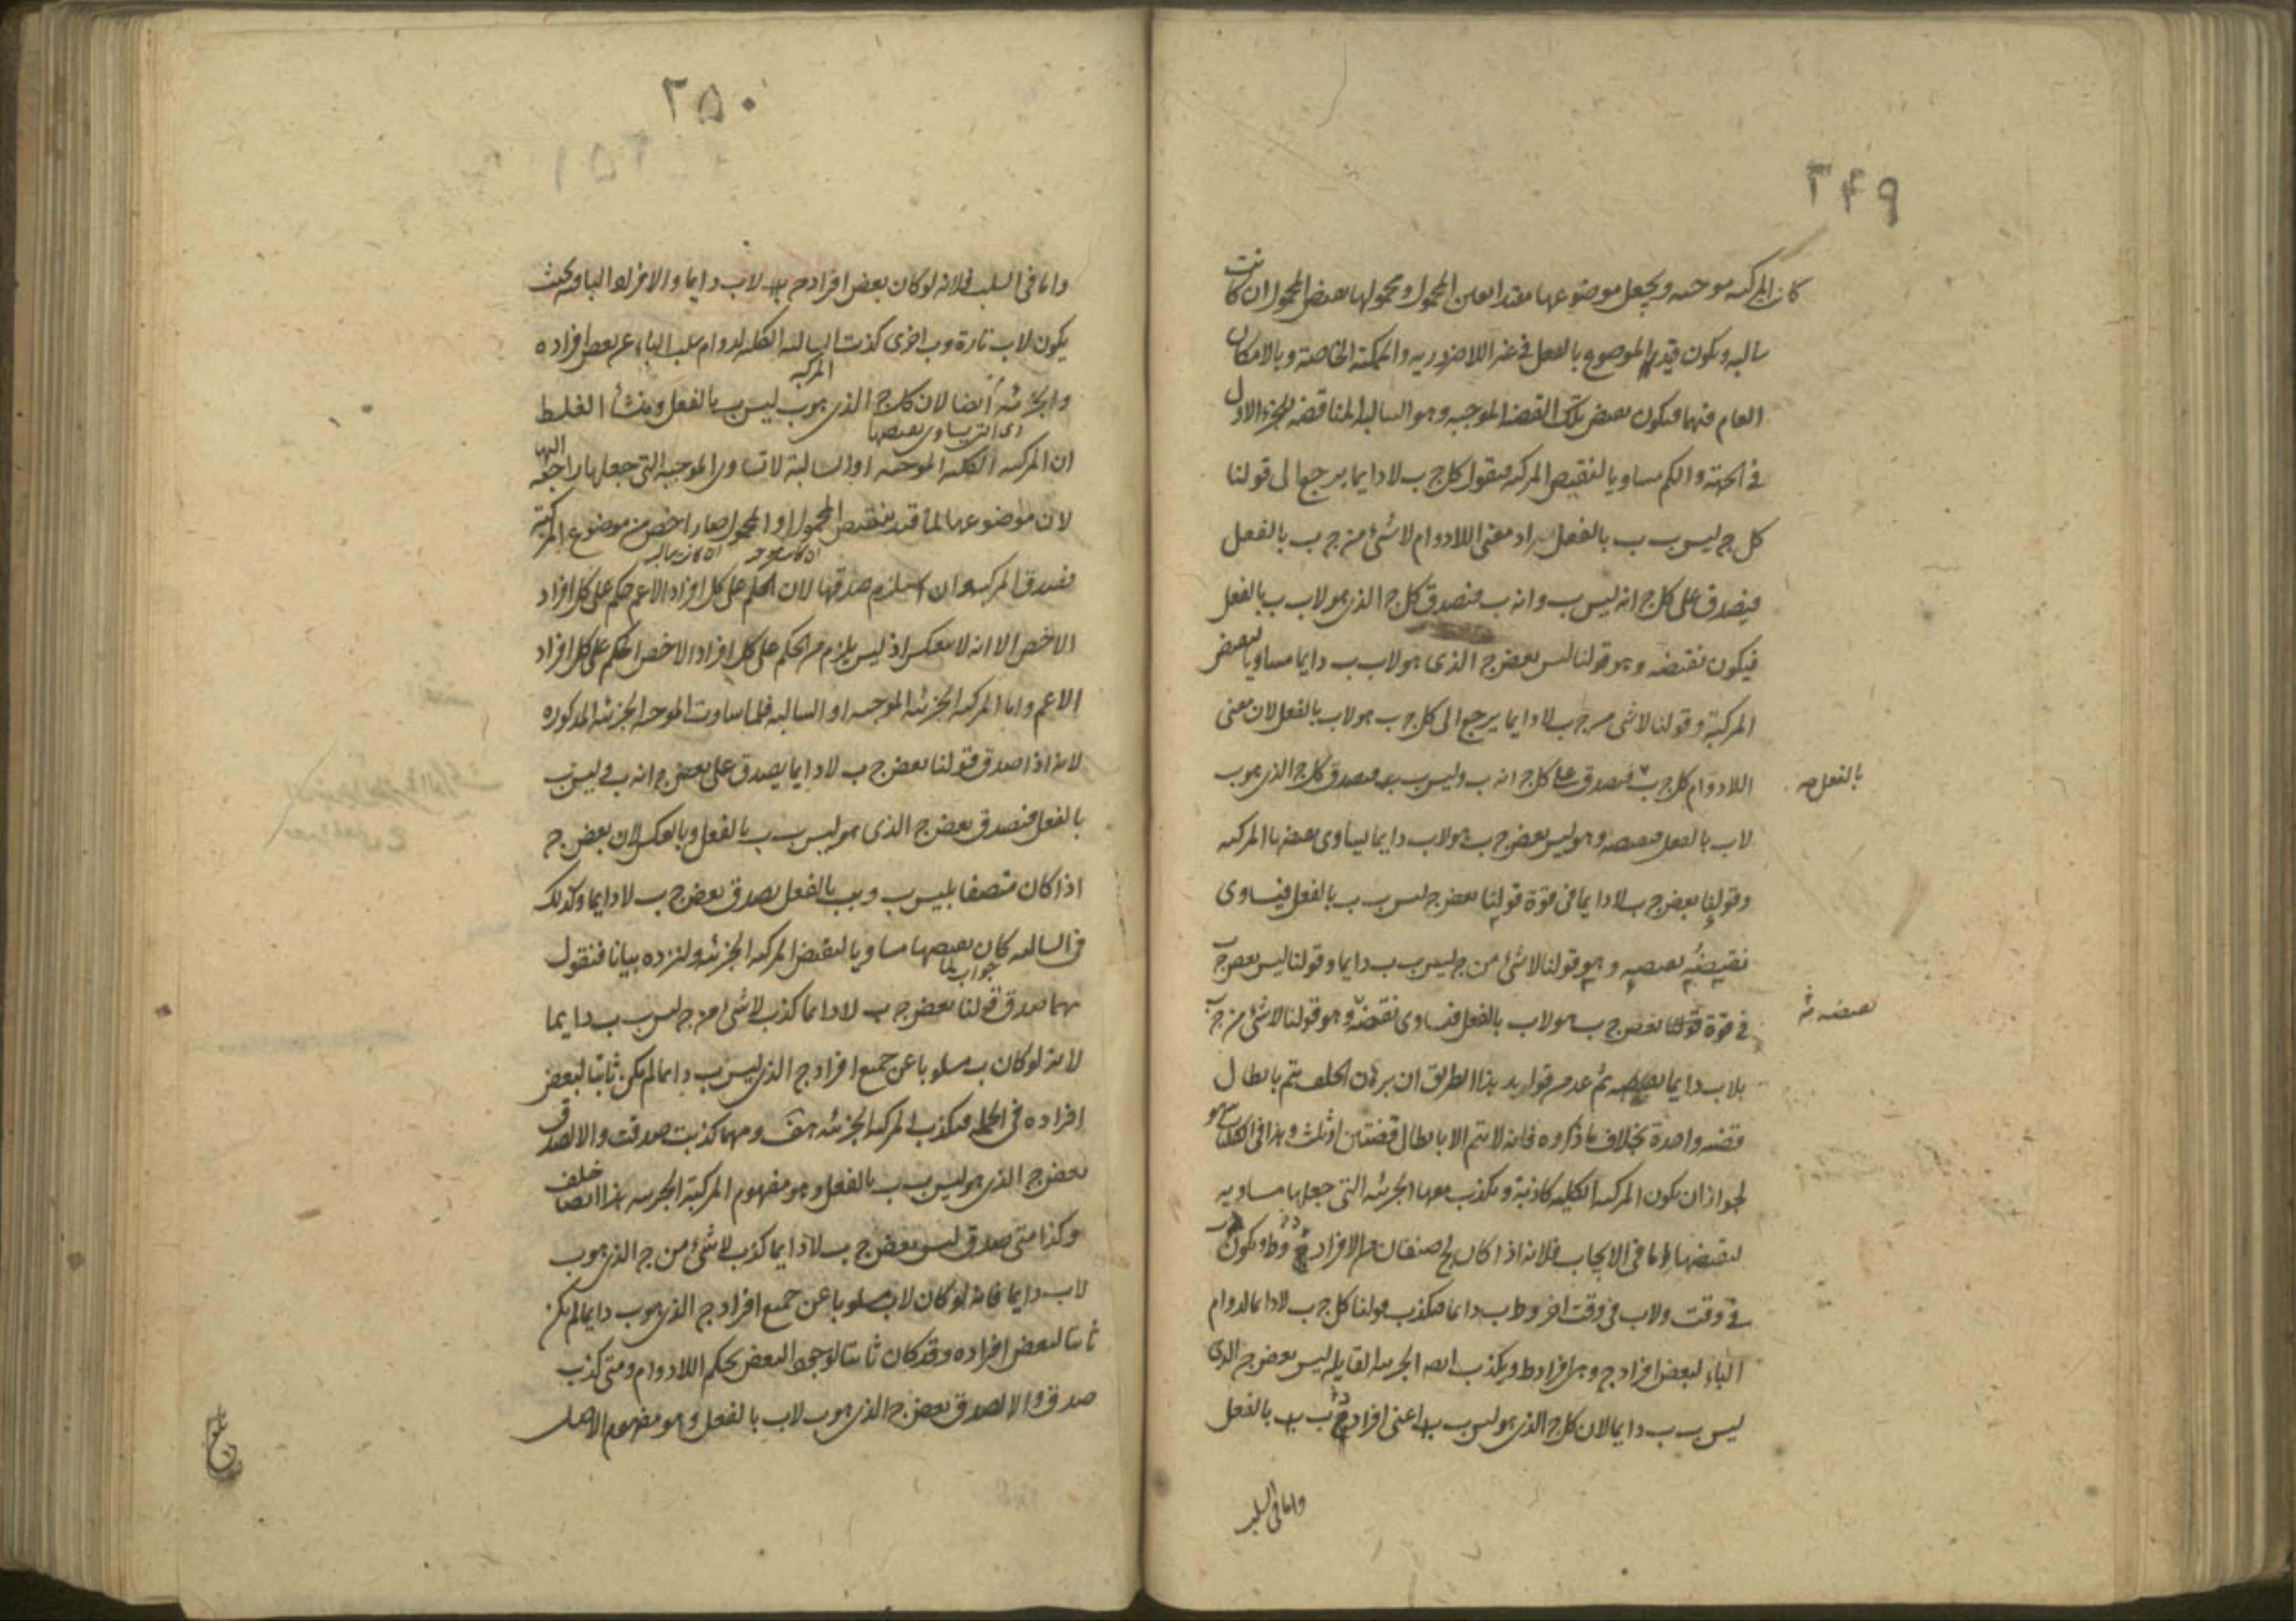 ٢٤٩
كان المركبه موجبه ويجعل موضوعها مقيدا بعين المحمول ومحمولها نقيض المحمول ان كانت
سالبه ويكون قيد الموضوع بالفعل في غير اللاضروريه والممكنة الخاصة وبالامكان
العام فيهما فيكون نقيض تلك القضيه الموجبه وهو السالبه المناقضه للجزء الاول
في الجهة والكم مساويا لنقيض المركبه فنقول كل ج ب لا دايما يرجع الى قولنا
كل ج ليس ب ب بالفعل يراد معنى اللادوام لا شئ من ج ب بالفعل
فيصدق على كل ج انه ليس ب وانه ب فيصدق كل ج الذى هو لا ب ب بالفعل
فيكون نقيضه وهو قولنا ليس بعض ج الذى هو لا ب ب دايما مساويا لنقيض
المركبة وقولنا لا شى من ج ب لا دايما يرجع الى كل ج ب هو لا ب بالفعل لان معنى
اللادوام كل ج ب فيصدق على كل ج انه ب وليس ب فيصدق كل ج الذى هو ب
بالفعل صح
لا ب بالفعل فنقيضه وهو ليس بعض ج ب هو لا ب دايما يساوى نقيض المركبه
وقولنا بعض ج ب لا دايما فى قوة قولنا بعض ج ليس ب ب بالفعل فيساوى
نقيضه نقيضه وهو قولنا لا شئ من ج ليس ب ب دايما وقولنا ليس بعض ج ب
في قوة قولنا بعض ج ب هو لا ب بالفعل فيساوى نقيضه وهو قولنا لا شئ من ج ب
نقيضه
بلا ب دايما نقيضه ثم عدم قوله يد هذا الطريق ان برهان الخلف يتم بابطال
قضيه واحدة بخلاف ما ذكروه فانه لا يتم الا بابطال قضيتين او ثلث وهذا فى الكليات
لجواز ان يكون المركبه الكليه كاذبة ويكذب معها الجزئيه التى جعلها مساويه
لنقيضها اما فى الايجاب فلانه اذا كان لج صنفان من الافراد ج و ط ويكون ب
في وقت ولا ب فى وقت اخر وط ب دايما فيكذب قولنا كل ج ب لا دايما لدوام
الباء لبعض افراد ج وهى افراد ط ويكذب ايضا الجزئيه القايله ليس بعض ج الذى
ليس ب ب دايما لان كل ج الذى هو ليس ب اعنى افراد ب بالفعل
واما فى السلب
٢٥٠
واما فى السلب فلانه لو كان بعض افراد ج لا ب دايما والافراد الباقيه بحيث
يكون لا ب تارة وب اخرى كذبت السالبه الكليه لدوام سلب الباء عن بعض افراده
المركبه
والجزئيه ايضا لان كل ج الذى هو ب ليس ب بالفعل ومنشأ الغلط
اى التى يساوى نقيضها
ان المركبه الكليه الموجبه او السالبة لا تساوى الموجبه التى جعلها راجعه اليها
لان موضوعها لما قيد بنقيض المحمول او المحمول صار اخص من موضوع المركبة
ان كانت موجبه ان كانت سالبه
فصدق المركبه وان استلزم صدقها لان الحكم على كل افراد الاعم حكم على كل افراد
الاخص الا انه لا ينعكس اذ ليس يلزم من الحكم على كل افراد الاخص الحكم على كل افراد
الاعم واما المركبه الجزئيه الموجبه او السالبه فلما ساوت الموجبه الجزئيه المذكوره
لانه اذا صدق قولنا بعض ج ب لا دايما يصدق على بعض ج انه ب وليس ب
بالفعل فيصدق بعض ج الذى هو ليس ب ب بالفعل وبالعكس لان بعض ج
اذا كان متصفا بليس ب وب بالفعل يصدق بعض ج ب لا دايما وكذلك
فى السالبه كان نقيضها مساويا لنقيض المركبه الجزئيه ولنزده بيانا فنقول
جواب لما
مهما صدق قولنا بعض ج ب لا دايما كذب لا شئ من ج ليس ب ب دايما
لانه لو كان ب مسلوبا عن جميع افراد ج الذى ليس ب دايما لم يكن ثابتا لبعض
افراده فى الجمله فيكذب المركبه الجزئيه هف ومهما كذبت صدقت والا لصدق
بعض ج الذى هو ليس ب ب بالفعل وهو مفهوم المركبة الجزئيه هذا ايضا خلف
وكذا متى صدق ليس بعض ج ب لا دايما كذب لا شئ من ج الذى هو ب
لا ب دايما فانه لو كان لا ب مسلوبا عن جميع افراد ج الذى هو ب دايما لم يكن
ثابتا لبعض افراده وقد كان ثابتا لبعض بحكم اللادوام ومتى كذب
صدق والا لصدق بعض ج الذى هو ب لا ب بالفعل وهو مفهوم الاصل